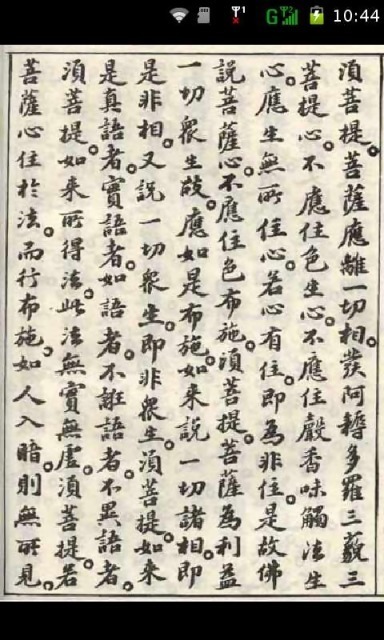 10:44
須菩提。菩薩應離一切相。發阿耨多羅三藐三
菩提心。不應住色生心。不應住聲香味觸法生
心。應生無所住心。若心有住。即為非住。是故佛
說菩薩心。不應住色布施。須菩提。菩薩為利益
一切衆生故。應如是布施。如來說一切諸相。即
是非相。又說一切衆生。即非衆生。須菩提。如來
是真語者。實語者。如語者。不誑語者。不異語者。
須菩提。如來所得法。此法無實無虛。須菩提。若
菩薩心住於法。而行布施。如人入暗。則無所見。